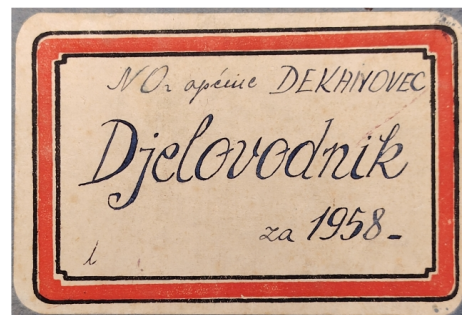 NO-a općine DEKANOVEC
Djelovodnik
za 1958-